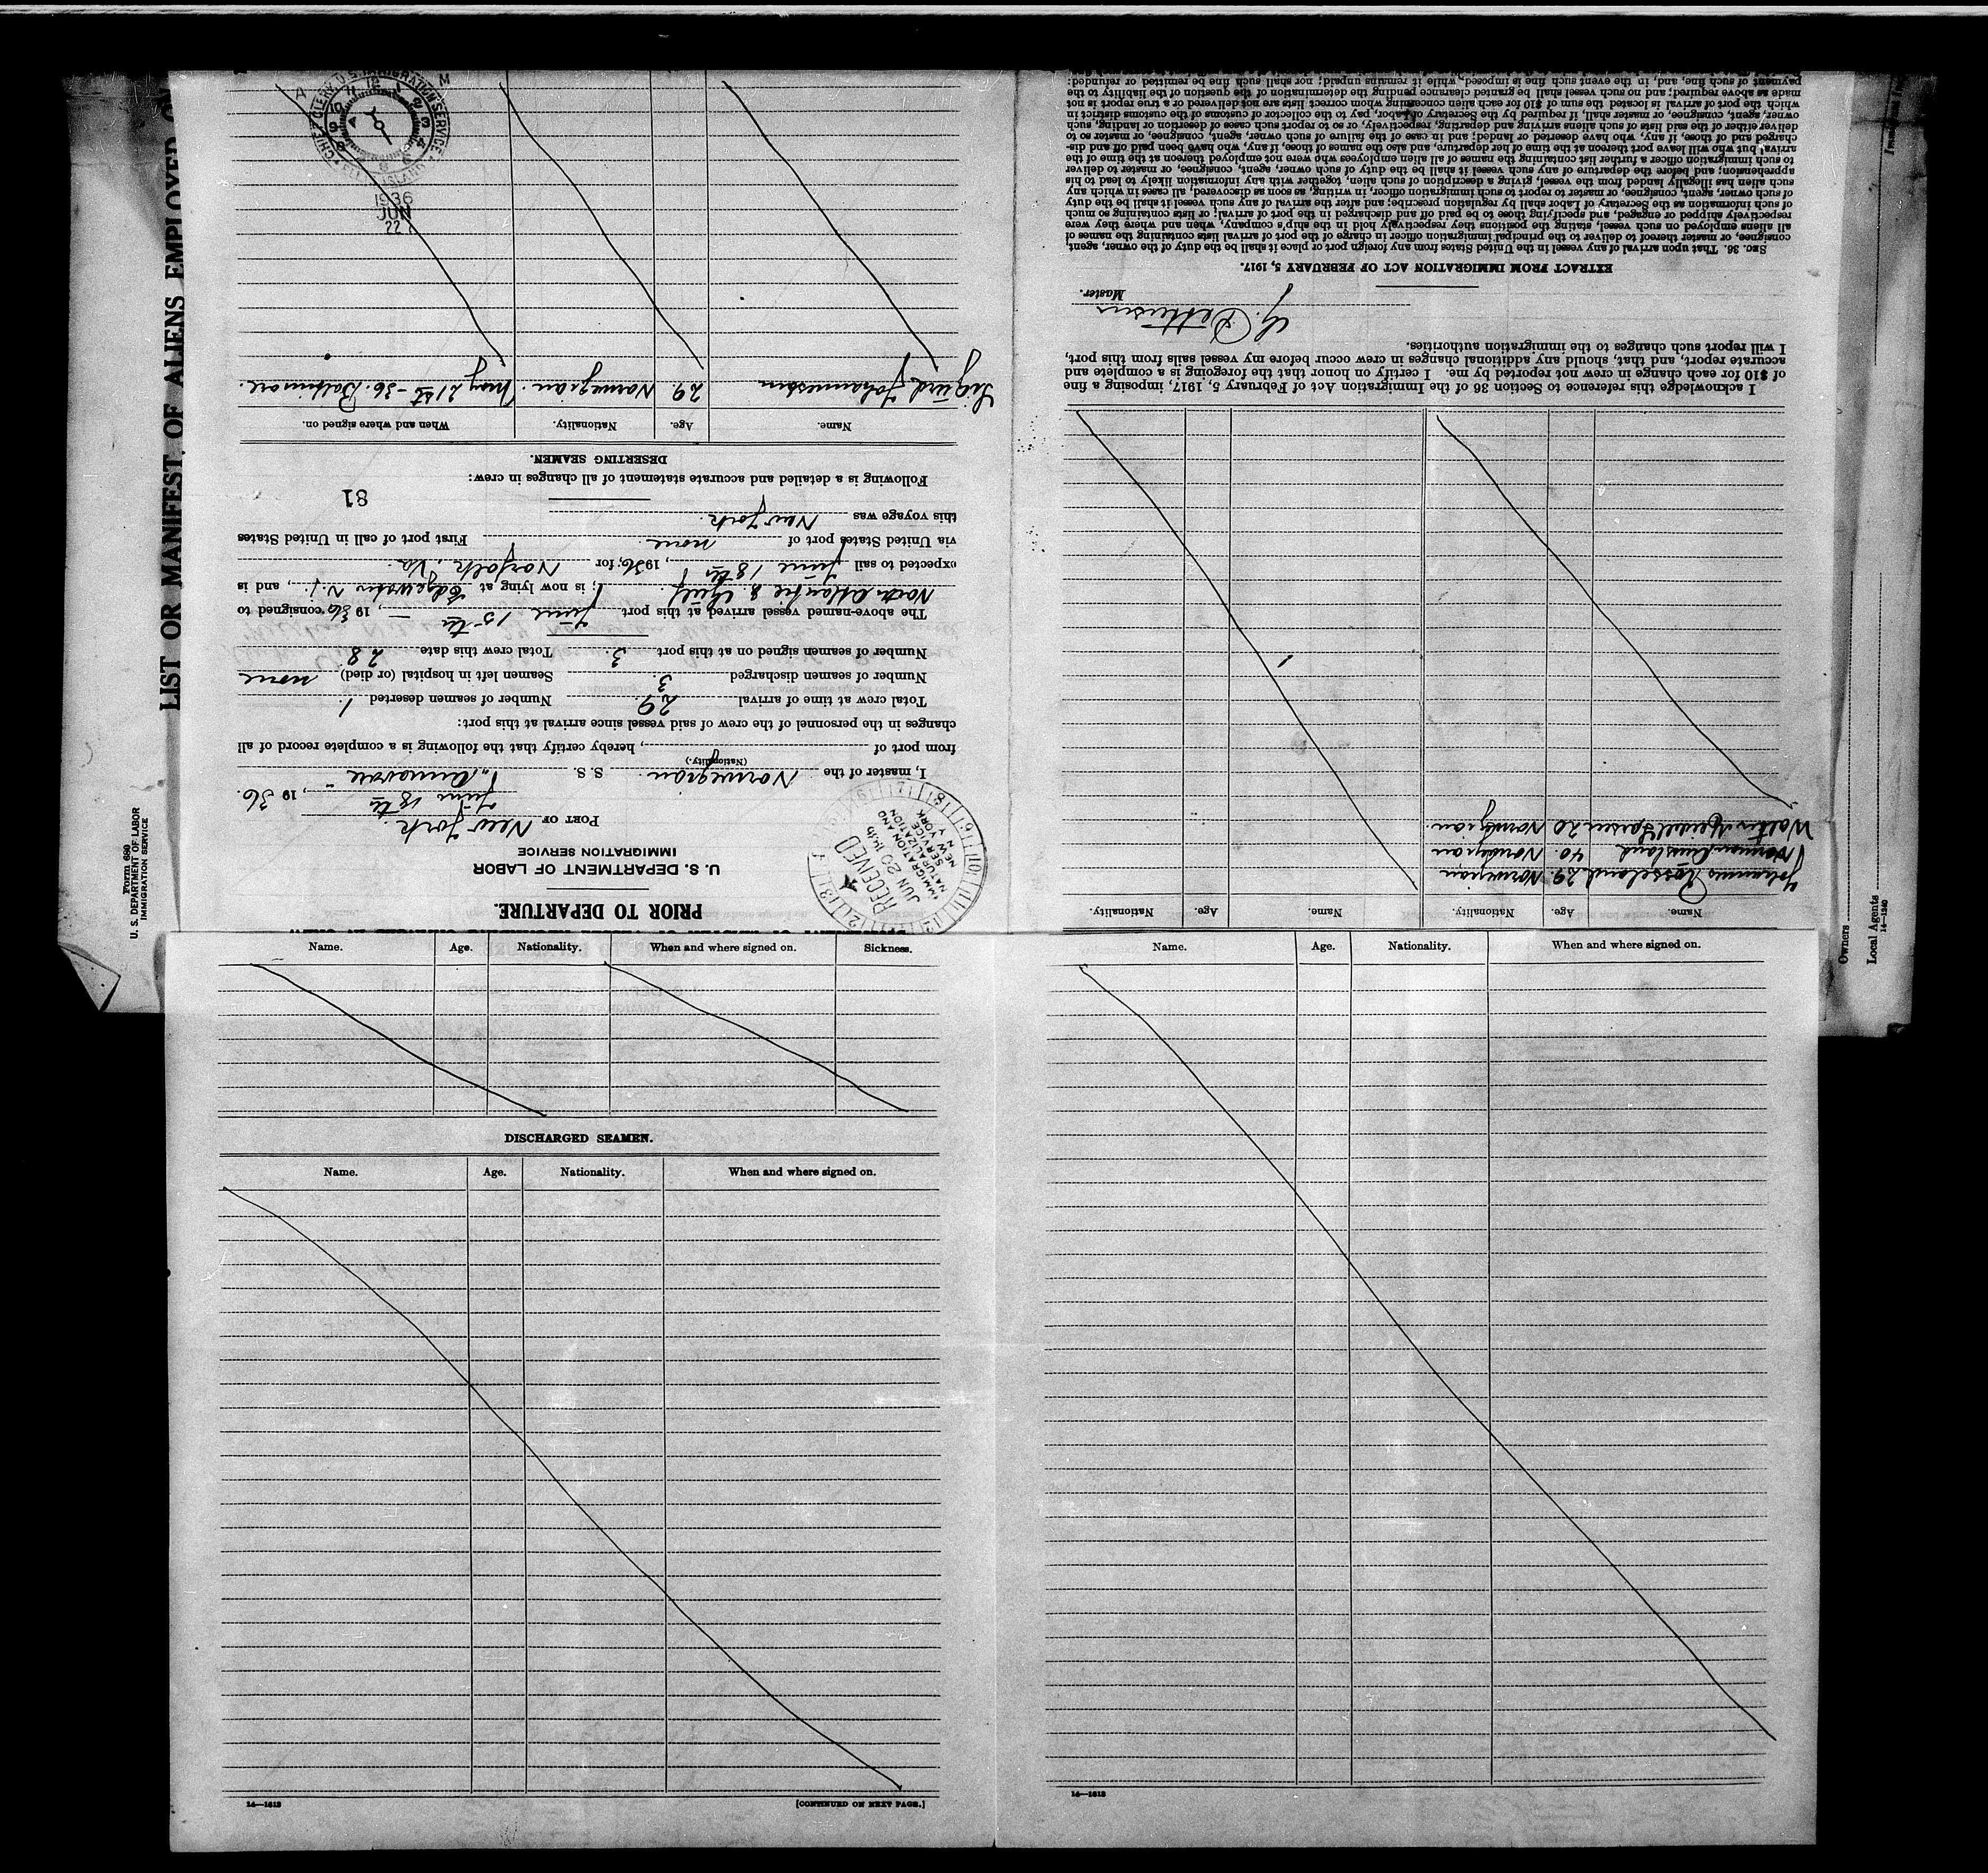 LIST OR MANIFEST OF ALIENS EMPLOYED ON
Form 680
U. S. DEPARTMENT OF LABOR
IMMIGRATION SERVICE
PRIOR TO DEPARTURE.
U. S. DEPARTMENT OF LABOR
IMMIGRATION SERVICE
RECEIVED
JUN 20
IMMIGRATION AND
NATURALIZATION
SERVICE
NEW YORK
PORT OF New York.
June 18th, 1936.
I, master of the Norwegian. S. S.
(Nationality.)
from port of , hereby certify that the following is a complete record of all
changes in the personnel of the crew of said vessel since arrival at this port:
Total crew at time of arrival 29. Number of seamen deserted 1.
Number of seamen discharged 3 Seamen left in hospital (or died) none
Number of seamen signed on at this port 3. Total crew this date 28
The above-named vessel arrived at this port June 15th, 1936 consigned to
North Atlantic & Gulf ; is now lying at Edgewater N. J., and is
expected to sail June 18th, 1936, for Norfolk. Va.
via United States port of none. First port of call in United States
this voyage was New York.
81
Following is a detailed and accurate statement of all changes in crew:
DESERTING SEAMEN.
Name. Age. Nationality. When and where signed on.
Sigurd Johannessen 29 Norwegian. May 21st-36. Baltimore.
CHIEF CLERK U. S. IMMIGRATION SERVICE
ELLIS ISLAND
1936
JUN
22
Name. Age. Nationality. Name. Age. Nationality.
Johannes Rosseland. 29. Norwegian
40. Norwegian
20 Norwegian.
I acknowledge this reference to Section 36 of the Immigration Act of February 5, 1917, imposing a fine
of $10 for each change in crew not reported by me. I certify on honor that the foregoing is a complete and
accurate report, and that, should any additional changes in crew occur before my vessel sails from this port,
I will report such changes to the immigration authorities.
Master.
EXTRACT FROM IMMIGRATION ACT OF FEBRUARY 5, 1917.
SEC. 36. That upon arrival of any vessel in the United States from any foreign port or place it shall be the duty of the owner, agent,
consignee, or master thereof to deliver to the principal immigration officer in charge of the port of arrival lists containing the names of
all aliens employed on such vessel, stating the positions they respectively hold in the ship's company, when and where they were
respectively shipped or engaged, and specifying those to be paid off and discharged in the port of arrival; or lists containing so much
of such information as the Secretary of Labor shall by regulation prescribe; and after the arrival of any such vessel it shall be the duty
of such owner, agent, consignee, or master to report to such immigration officer, in writing, as soon as discovered, all cases in which any
such alien has illegally landed from the vessel, giving a description of such alien, together with any information likely to lead to his
apprehension; and before the departure of any such vessel it shall be the duty of such owner, agent, consignee, or master to deliver
to such immigration officer a further list containing the names of all alien employees who were not employed thereon at the time of the
arrival but who will leave port thereon at the time of her departure, and also the names of those, if any, who have been paid off and dis-
charged and of those, if any, who have deserted or landed; and in case of the failure of such owner, agent, consignee, or master so to
deliver either of the said lists of such aliens arriving and departing, respectively, or so to report such cases of desertion or landing, such
owner, agent, consignee, or master shall, if required by the Secretary of Labor, pay to the collector of customs of the customs district in
which the port of arrival is located the sum of $10 for each alien concerning whom correct lists are not delivered or a true report is not
made as above required; and no such vessel shall be granted clearance pending the determination of the question of the liability to the
payment of such fine, and, in the event such fine is imposed, while it remains unpaid; nor shall such fine be remitted or refunded:
Owners
Local Agents
14—1240
Name. Age. Nationality. When and where signed on. Sickness.
DISCHARGED SEAMEN.
Name. Age. Nationality. When and where signed on.
14—1613
[CONTINUED ON NEXT PAGE.]
Name. Age. Nationality. When and where signed on.
14—1613